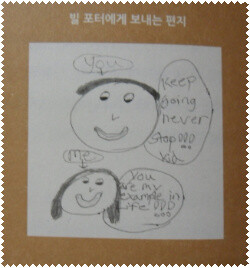 빌 포터에게 보내는 편지
You
keep
going
never
stop!!!
Me
You
are my
example in
Life!!!